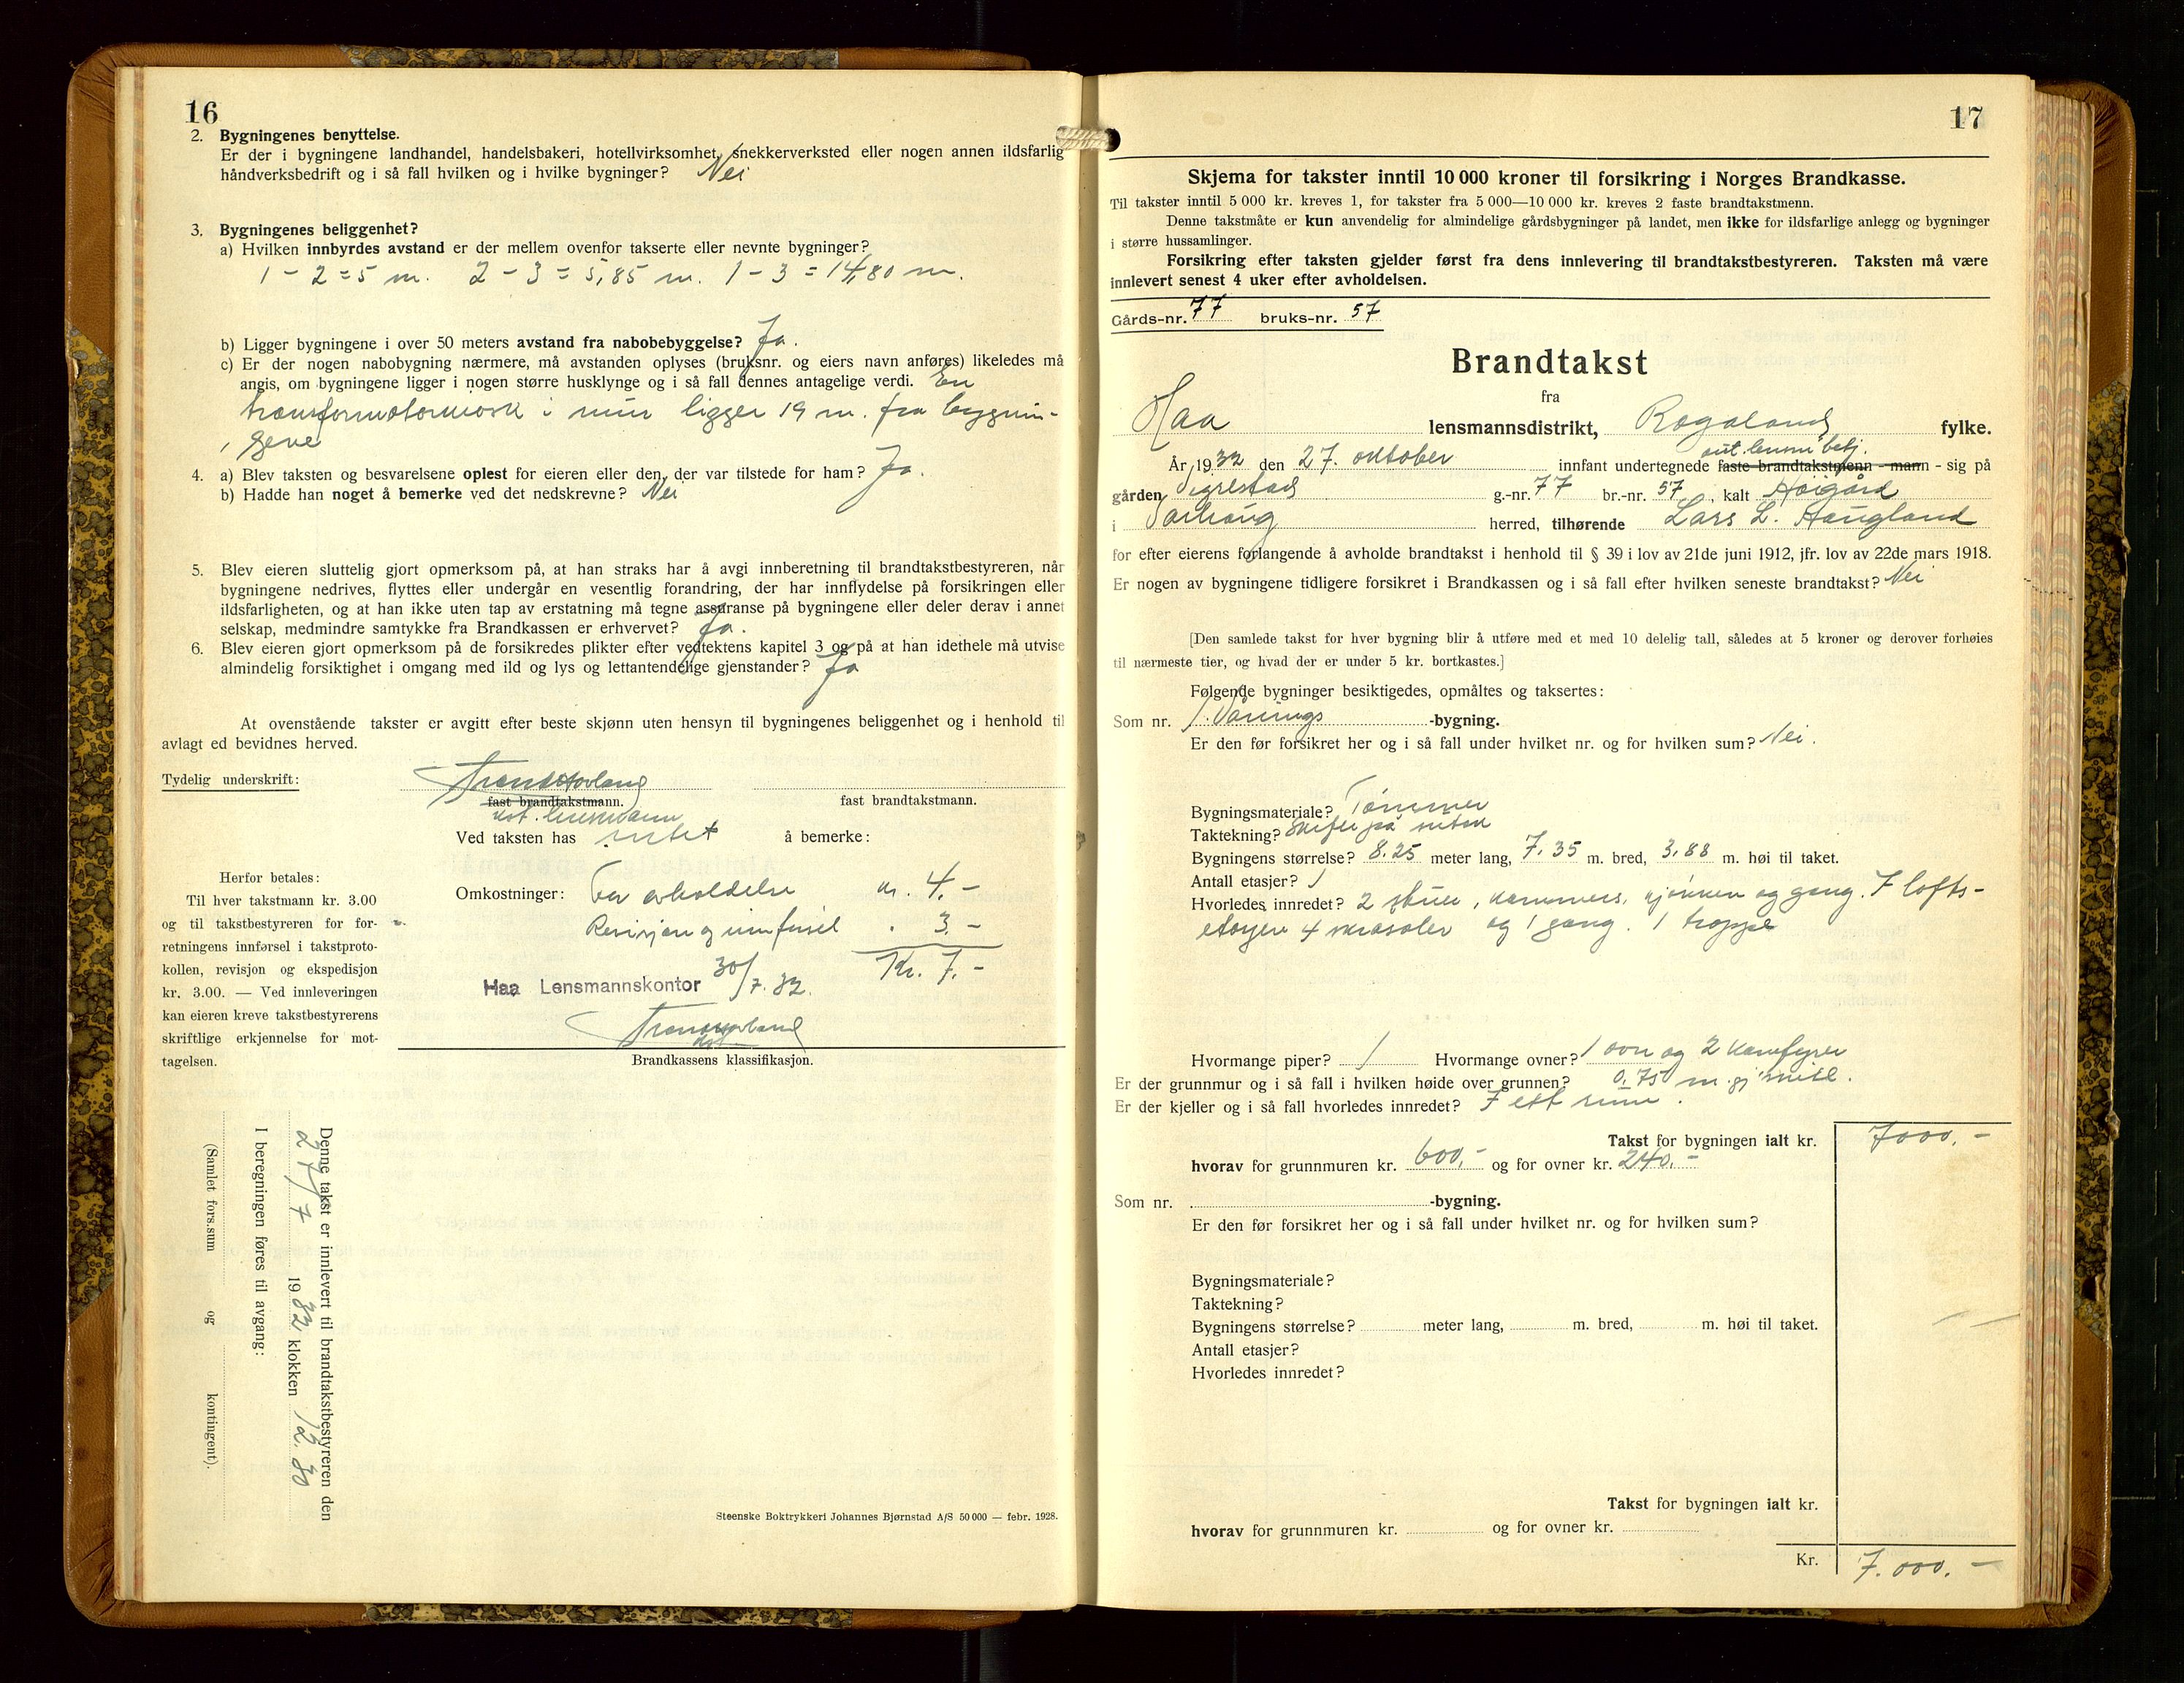 16
2. Bygningenes benyttelse.
Er der i bygningene landhandel, handelsbakeri, hotellvirksomhet, snekkerverksted eller nogen annen ildsfarlig
håndverksbedrift og i så fall hvilken og i hvilke bygninger? Nei
3. Bygningenes beliggenhet?
a) Hvilken innbyrdes avstand er der mellem ovenfor takserte eller nevnte bygninger?
1 - 2 = 5 m. 2 - 3 = 5,85 m. 1 - 3 = 14,80 m.
b) Ligger bygningene i over 50 meters avstand fra nabobebyggelse? Ja.
c) Er der nogen nabobygning nærmere, må avstanden oplyses (bruksnr. og eiers navn anføres) likeledes må
angis, om bygningene ligger i nogen større husklynge og i så fall dennes antagelige verdi. En
transformatorkiosk i mur ligger 19 m. fra bygnin-
gene
4. a) Blev taksten og besvarelsene oplest for eieren eller den, der var tilstede for ham? Ja.
b) Hadde han noget å bemerke ved det nedskrevne? Nei
5. Blev eieren sluttelig gjort opmerksom på, at han straks har å avgi innberetning til brandtakstbestyreren, når
bygningene nedrives, flyttes eller undergår en vesentlig forandring, der har innflydelse på forsikringen eller
ildsfarligheten, og at han ikke uten tap av erstatning må tegne assuranse på bygningene eller deler derav i annet
selskap, medmindre samtykke fra Brandkassen er erhvervet? Ja.
6. Blev eieren gjort opmerksom på de forsikredes plikter efter vedtektenes kapitel 3 og på at han idethele må utvise
almindelig forsiktighet i omgang med ild og lys og lettantendelige gjenstander? Ja
At ovenstående takster er avgitt efter beste skjønn uten hensyn til bygningenes beliggenhet og i henhold til
avlagt ed bevidnes herved.
Tydelig underskrift:
fast brandtakstmann. fast brandtakstmann.
kst. lensmann
Ved taksten has intet å bemerke:
Herfor betales:
Til hver takstmann kr. 3.00
og til takstbestyreren for for-
retningens innførsel i takstproto-
kollen, revisjon og ekspedisjon
kr. 3.00. — Ved innleveringen
kan eieren kreve takstbestyrerens
skriftlige erkjennelse for mot-
tagelsen.
Omkostninger: For avholdelse kr. 4.-
Revisjon og innførsel " 3.-
Kr. 7.-
Haa Lensmannskontor 30/7.32.
Brandkassens klassifikasjon.
Denne takst er innlevert til brandtakstbestyreren den
27/7 1932 klokken 12.30
I beregningen føres til avgang:
(Samlet fors.sum og kontingent).
Steenske Boktrykkeri Johannes Bjørnstad A/S 50 000 — febr. 1928.
17
Skjema for takster inntil 10 000 kroner til forsikring i Norges Brandkasse.
Til takster inntil 5 000 kr. kreves 1, for takster fra 5 000—10 000 kr. kreves 2 faste brandtakstmenn.
Denne takstmåte er kun anvendelig for almindelige gårdsbygninger på landet, men ikke for ildsfarlige anlegg og bygninger
i større hussamlinger.
Forsikring efter taksten gjelder først fra dens innlevering til brandtakstbestyreren. Taksten må være
innlevert senest 4 uker efter avholdelsen.
Gårds-nr. 77 bruks-nr. 57
Brandtakst
fra
Haa lensmannsdistrikt, Rogaland fylke.
År 1932 den 27. oktober innfant undertegnede faste brandtakstmenn - mann - sig på
gården g.-nr. 77 br.-nr. 57, kalt Høigård
i Varhaug herred, tilhørende Lars L. Haugland
for efter eierens forlangende å avholde brandtakst i henhold til § 39 i lov av 21de juni 1912, jfr. lov av 22de mars 1918.
Er nogen av bygningene tidligere forsikret i Brandkassen og i så fall efter hvilken seneste brandtakst? Nei
[Den samlede takst for hver bygning blir å utføre med et med 10 delelig tall, således at 5 kroner og derover forhøies
til nærmeste tier, og hvad der er under 5 kr. bortkastes.]
Følgende bygninger besiktigedes, opmåltes og taksertes:
Som nr. 1. Vånings -bygning.
Er den før forsikret her og i så fall under hvilket nr. og for hvilken sum? Nei.
Bygningsmateriale? Tømmer
Taktekning? Skifer på
Bygningens størrelse? 8.25 meter lang, 7.35 m. bred, 3.88 m. høi til taket.
Antall etasjer? 1
Hvorledes innredet? 2 stuer, kammers, kjøkken og gang. I lofts-
etasjen 4 skråsaler og 1 gang. 1 trappe
Hvormange piper? 1 Hvormange ovner? 1 ovn og 2 komfyrer
Er der grunnmur og i så fall i hvilken høide over grunnen? 0.75 m. gj.snitl.
Er der kjeller og i så fall hvorledes innredet? I ett rum.
Takst for bygningen ialt kr. 7000.-
hvorav for grunnmuren kr. 600,- og for ovner kr. 240.-
Som nr. -bygning.
Er den før forsikret her og i så fall under hvilket nr. og for hvilken sum?
Bygningsmateriale?
Taktekning?
Bygningens størrelse? meter lang, m. bred, m. høi til taket.
Antall etasjer?
Hvorledes innredet?
Takst for bygningen ialt kr.
hvorav for grunnmuren kr. og for ovner kr.
Kr. 7.000.-